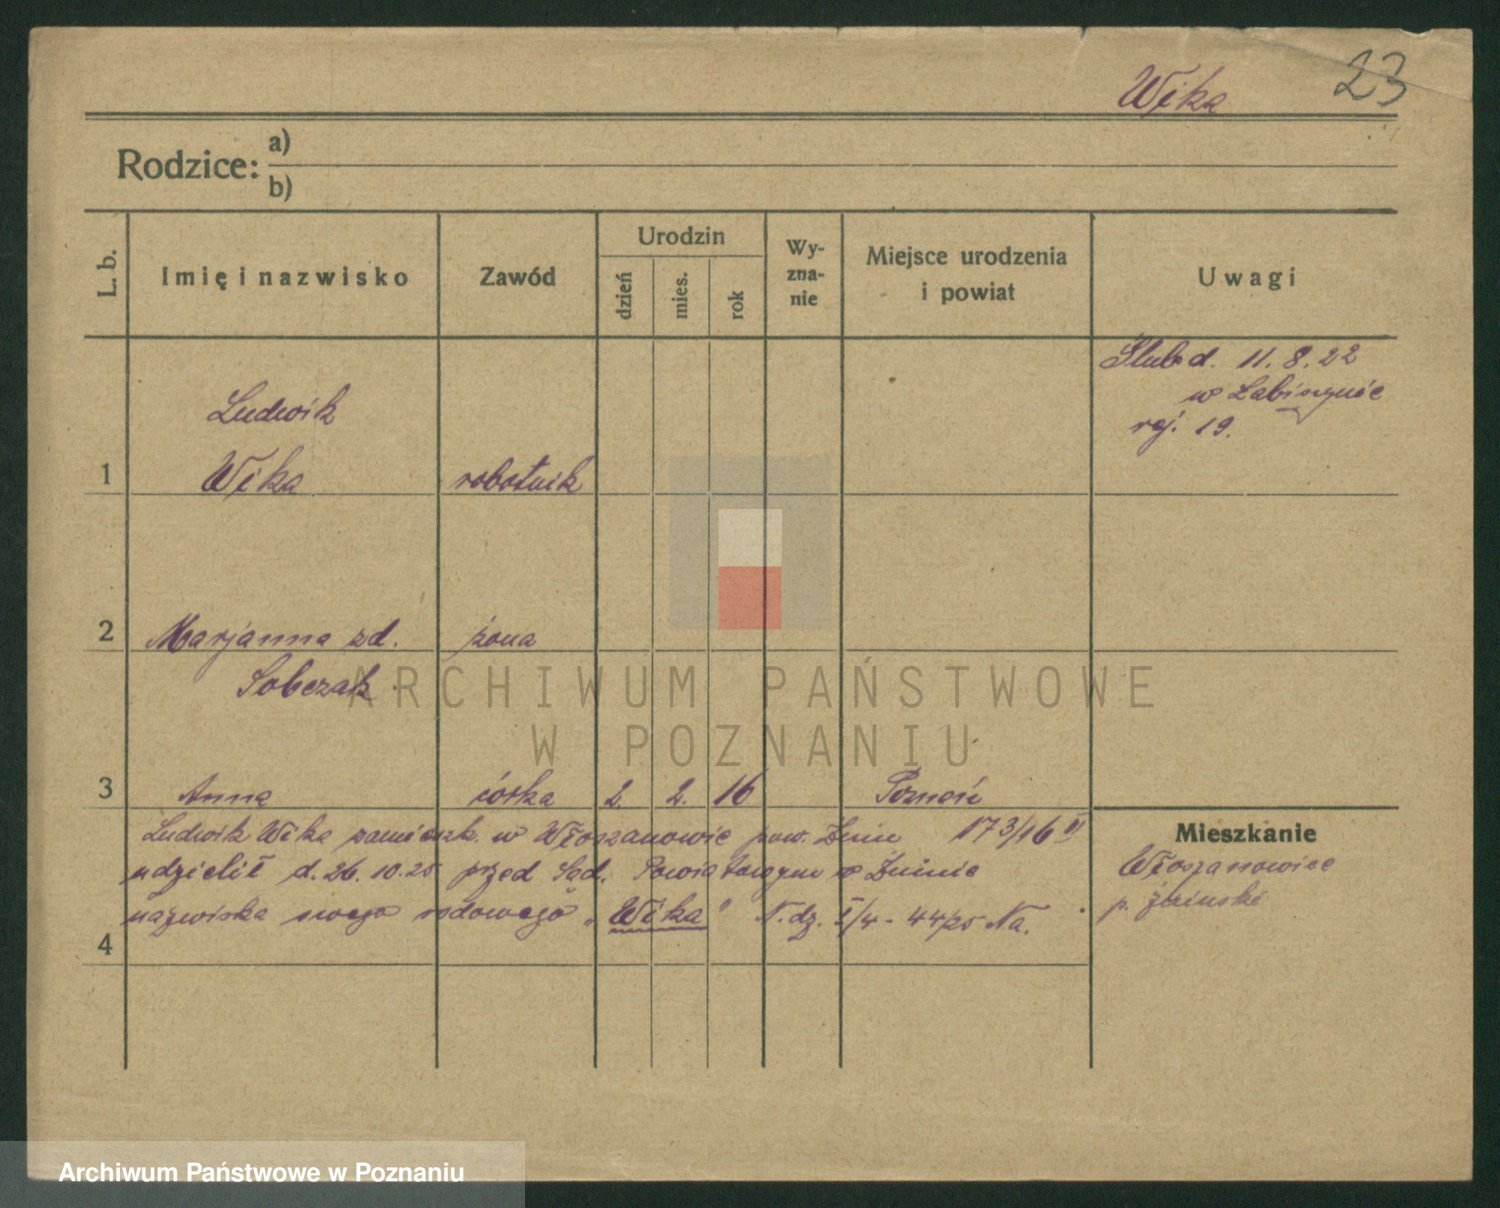 Wika 23
Rodzice: a)
b)
L. b. Imię i nazwisko Zawód Urodzin dzień mies. rok Wy-zna-nie Miejsce urodzenia i powiat Uwagi
Ślub d. 11. 8. 22
w Łabiszynie
rej. 19.
Ludwik
1 Wika robotnik
2 Marjanna zd. żona
Sobczak
ARCHIWUM PAŃSTWOWE
W POZNANIU
3 Anna córka 2. 2. 16 Poznań
Ludwik Wika zamieszk. w Włoszanowie pow. Żnin 173/16 II
udzielił d. 26. 10. 25 przed Sąd. Powiatowym w Żninie
nazwiska swego rodowego „Wika" N. dz. I/4 - 44/25 Na.
4
Mieszkanie
Włoszanowiec
p. żniński
Archiwum Państwowe w Poznaniu